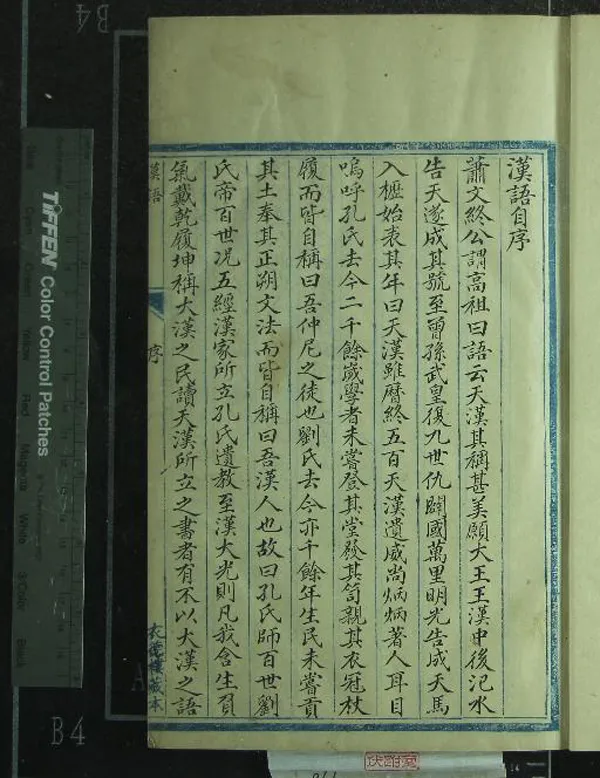 漢語自序
蕭文終公謂高祖曰語云天漢其稱甚美願大王王漢中後汜水
告天遂成其號至曾孫武皇復九世仇闢國萬里明光告成天馬
入櫪始表其年曰天漢雖曆終五百天漢遺威尚炳炳著人耳目
嗚呼孔氏去今二千餘歲學者未嘗登其堂發其笥親其衣冠杖
履而皆自稱曰吾仲尼之徒也劉氏去今亦千餘年生民未嘗貢
其土奉其正朔文法而皆自稱曰吾漢人也故曰孔氏師百世劉
氏帝百世況五經漢家所立孔氏遺教至漢大光則凡我含生負
氣戴乾履坤稱大漢之民讀天漢所立之書者有不以大漢之語
漢語
序
衣德樓藏本
TIFFEN Color Control Patches
B4
B4